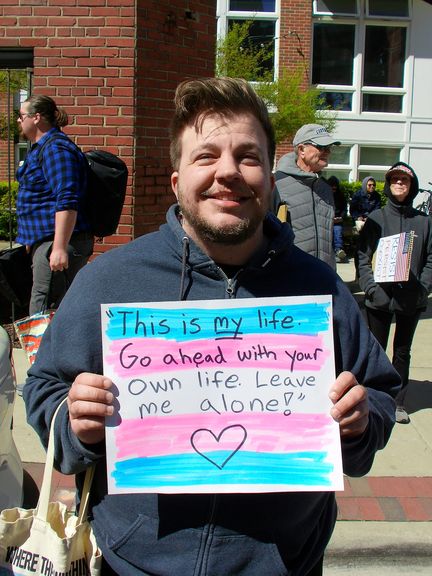 "This is my life.
Go ahead with your
own life. Leave
me alone!"
WHERE TH